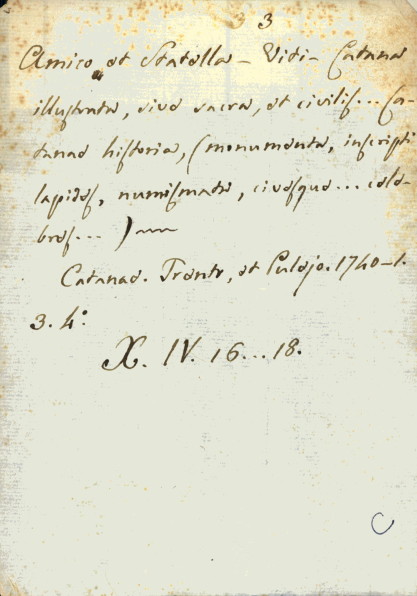 3
Amico et Statella - Viti - Catana
illustrata, sive sacra, et civilis... Ca
tanae historia, (monumenta, inscripti
lapides, numismata, civesque... cele-
bres... )
Catanae. Trento, et Pulejo. 1740-1.
3. 4.º
X. IV. 16...18.
C